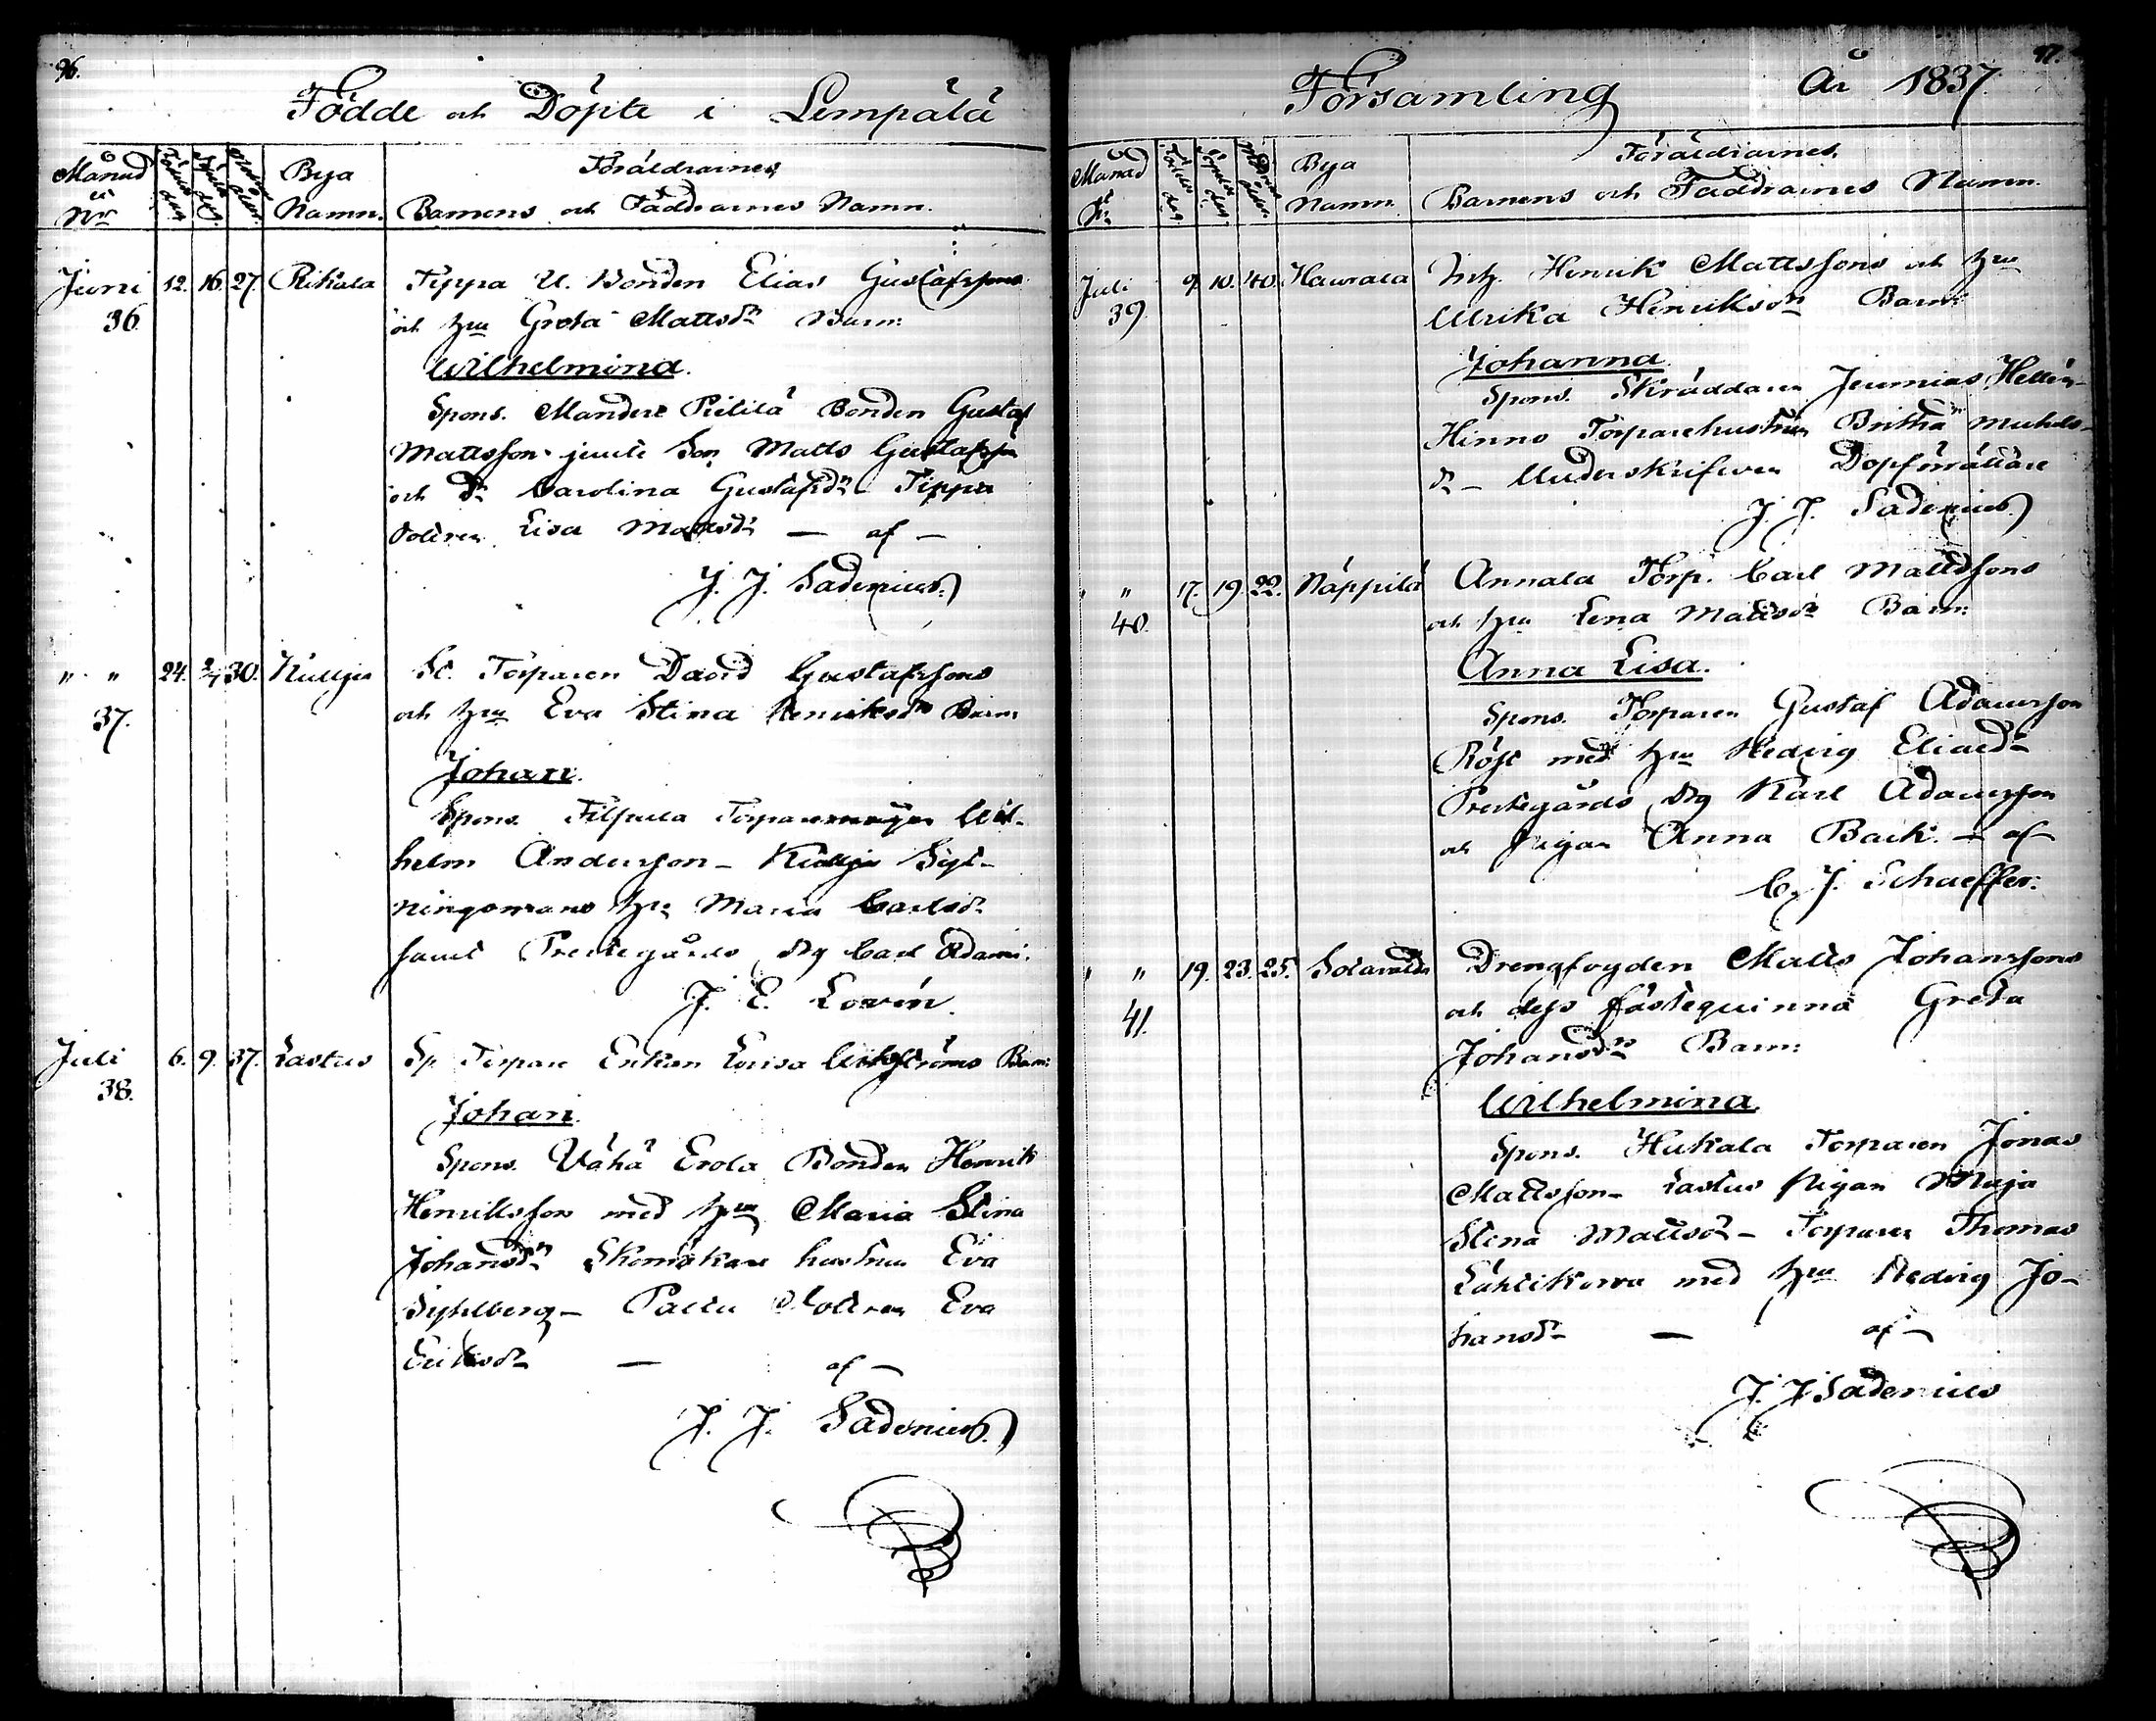 96.
Födde och Döpte i Lempälä
Månad
och
Nr
Födelse
dag
Döpelse
dag
Modrens
ålder
Bya
Namn.
Föräldrarnes
Barnens och Faddrarnes Namn.
Juni 12. 16. 27. Rikala Tippa U. Bonden Elias Gustafssons
36. och hru Greta Mattsdr Barn:
Wilhelmina.
Spons. Mandere Pietilä Bonden Gustaf
Mattsson jemte Son Matts Gustafsson
och Dr Carolina Gustafsdr Tippa
Lisa Mattsdr — af —
J. J. Sadenius.
" " 24. 2/7 30. Kuljju St. Torparen David Gustafssons
37. och hru Eva Stina Henriksdr Barn
Johan.
Spons. Filpula Wil-
helm Andersson — Kuljju Syt-
ningsmans hru Maria Carlsdr
samt Prestegårds drg Carl Adami.
J. E. Lovén.
Juli 6. 9. 37. Lastus Sp. Torpare Enkan Lovisa Barn:
38.
Johan.
Spons. Vähä Erola Bonden Henrik
Henriksson med hru Maria Stina
Johansdr Skomakare hustrun Eva
Eva
Eriksdr — af —
J. J. Sadenius.
97.
Församling År 1837.
Månad
Nr
Födelse
dag
Döpelse
dag
Modrens
ålder
Bya
Namn.
Föräldrarnes
Barnens och Faddrarnes Namn.
Juli 9. 10. 40. Haurala Inh. Henrik Mattssons och hru
39. Ulrika Henriksdr Barn:
Johanna.
Spons. Skräddaren Jeremias Hellén —
Hinno Torparehustrun Britha Michels-
dr — Underskrifven Dopförrättare
J. J. Sadenius.
" " 17. 19. 22. Näppilä Annala Torp. Carl Mattssons
40. och hru Lena Mattsdr Barn:
Anna Lisa.
Spons. Torparen Gustaf Adamsson
med hru Hedvig Eliaedr
Prestegårds drg Karl Adamsson
och pigan Anna Back. — af —
C. J. Schaeffer.
" " 19. 23. 25. Sotavalda Drengfogden Matts Johanssons
41. och dess fästequinna Greta
Johansdr Barn:
Wilhelmina.
Spons. Hukala Torparen Jonas
Mattsson — Lastus pigan Maja
Stina Mattsdr — Torparen Thomas
Lähtikorva med hru Hedvig Jo-
hansdr — af —
J. J. Sadenius